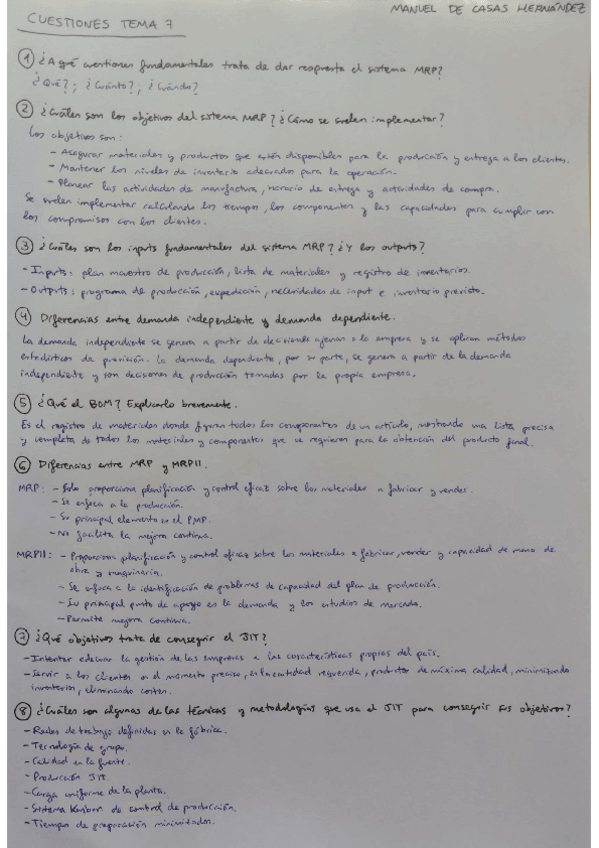 MANUEL DE CASAS HERNÁNDEZ
CUESTIONES TEMA 7
① ¿A qué cuestiones fundamentales trata de dar respuesta el sistema MRP?
¿Qué?; ¿Cuánto?; ¿Cuándo?
② ¿Cuáles son los objetivos del sistema MRP? ¿Cómo se suelen implementar?
Los objetivos son:
- Asegurar materiales y productos que estén disponibles para la producción y entrega a los clientes.
- Mantener los niveles de inventario adecuados para la operación.
- Planear las actividades de manufactura, horario de entrega y actividades de compra.
Se suelen implementar calculando los tiempos, los componentes y las capacidades para cumplir con
los compromisos con los clientes.
③ ¿Cuáles son los inputs fundamentales del sistema MRP? ¿Y los outputs?
- Inputs: plan maestro de producción, lista de materiales y registro de inventarios.
- Outputs: programa de producción, expedición, necesidades de input e inventario previsto.
④ Diferencias entre demanda independiente y demanda dependiente.
La demanda independiente se genera a partir de decisiones ajenas a la empresa y se aplican métodos
estadísticos de previsión. La demanda dependiente, por su parte, se genera a partir de la demanda
independiente y son decisiones de producción tomadas por la propia empresa.
⑤ ¿Qué el BOM? Explicarlo brevemente.
Es el registro de materiales donde figuran todos los componentes de un artículo, mostrando una lista precisa
y completa de todos los materiales y componentes que se requieren para la obtención del producto final.
⑥ Diferencias entre MRP y MRPII.
MRP: - Solo proporciona planificación y control eficaz sobre los materiales a fabricar y vender.
- Se enfoca a la producción.
- Su principal elemento es el PMP.
- No facilita la mejora continua.
MRPII: - Proporciona planificación y control eficaz sobre los materiales a fabricar, vender y capacidad de mano de
obra y maquinaria.
- Se enfoca a la identificación de problemas de capacidad del plan de producción.
- Su principal punto de apoyo es la demanda y los estudios de mercado.
- Permite mejora continua.
⑦ ¿Qué objetivos trata de conseguir el JIT?
- Intentar adecuar la gestión de las empresas a las características propias del país.
- Servir a los clientes en el momento preciso, en la cantidad requerida, productos de máxima calidad, minimizando
inventarios, eliminando costes.
⑧ ¿Cuáles son algunas de las técnicas y metodologías que usa el JIT para conseguir sus objetivos?
- Redes de trabajo definidas en la fábrica.
- Tecnología de grupo.
- Calidad en la fuente.
- Producción JIT.
- Carga uniforme de la planta.
- Sistema Kanban de control de producción.
- Tiempos de preparación minimizados.